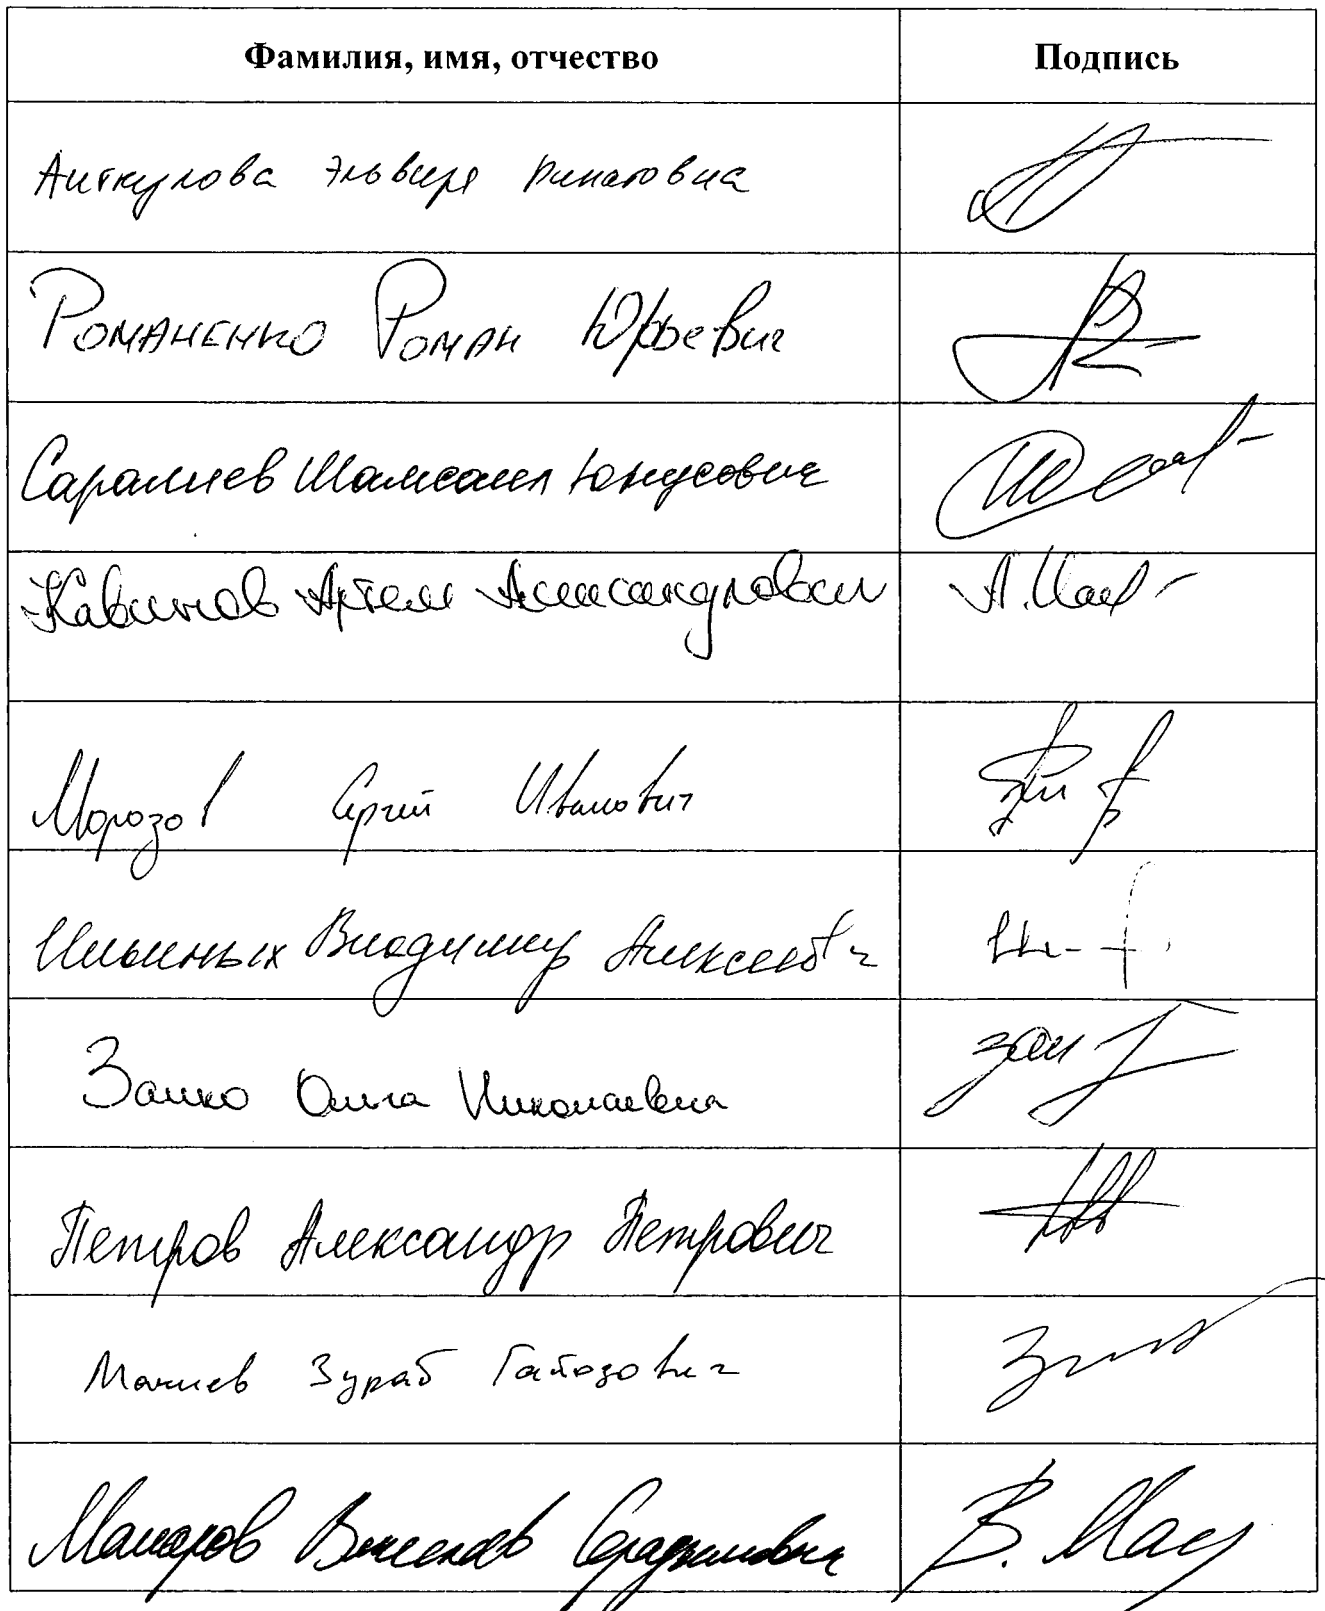 Фамилия, имя, отчество Подпись
Аиткулова Эльвира Ринатовна
Романенко Роман Юрьевич
Саралиев Шамсаил Юнусович
Кавинов Артем Александрович А.
Морозов Сергей Иванович
Ильиных Владимир Алексеевич
Занко Ольга Николаевна
Петров Александр Петрович
Макиев Зураб Гайозович
Макаров Вячеслав В. Мак